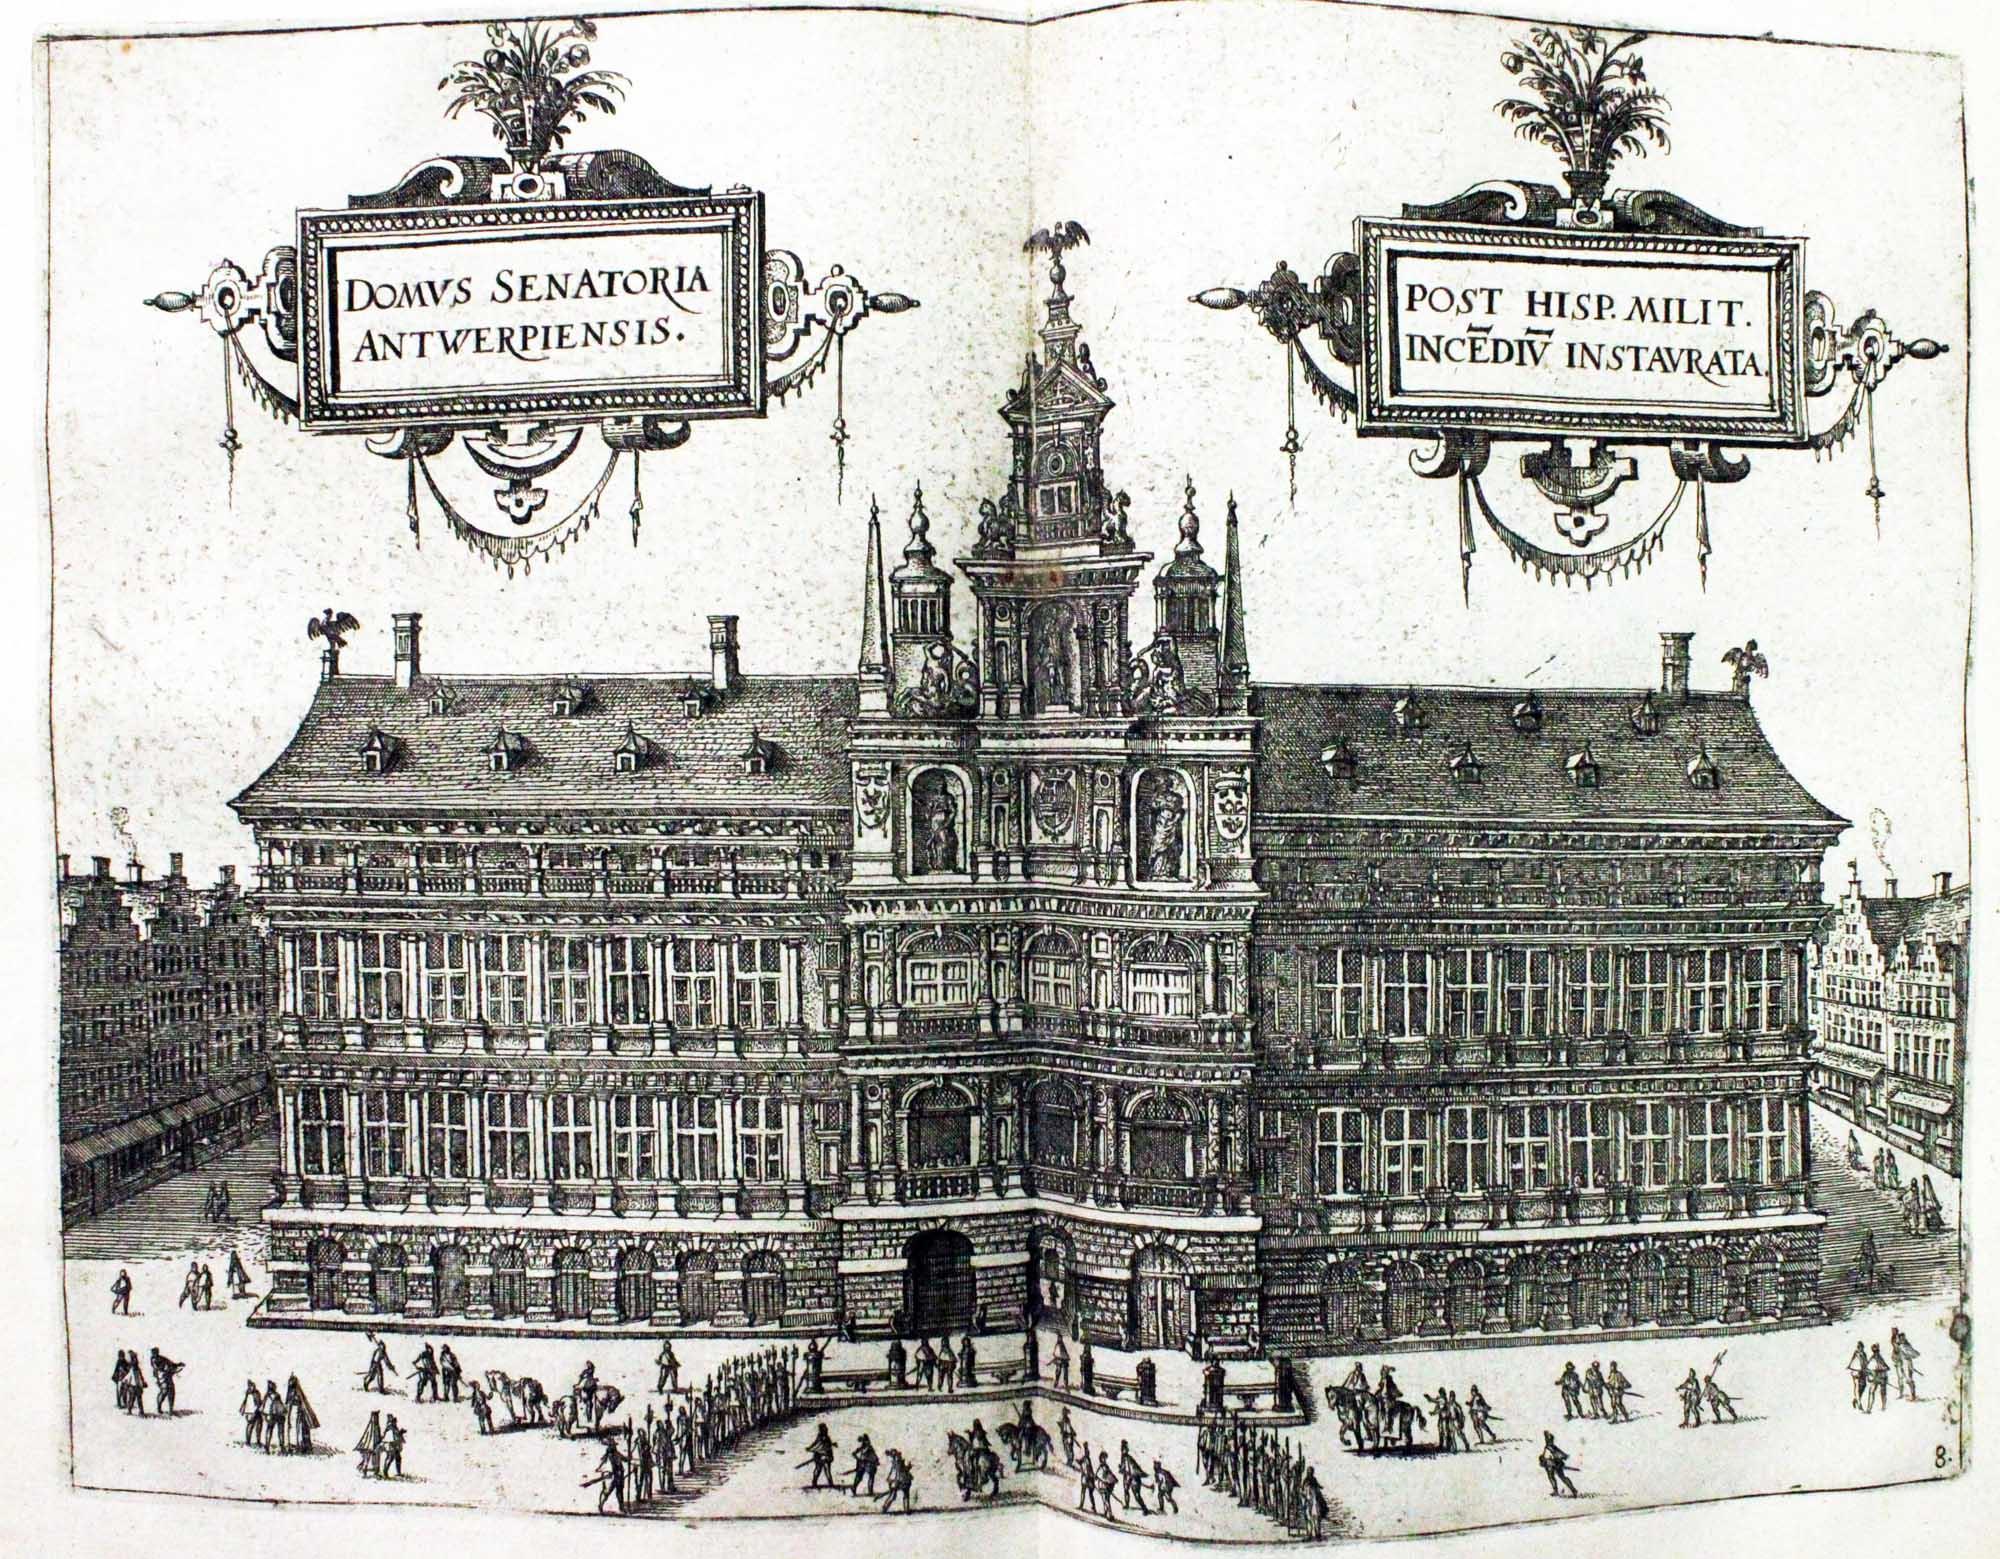 DOMVS SENATORIA
ANTWERPIENSIS.
POST HISP. MILIT.
INCE̅DIV̅ INSTAVRATA.
8.